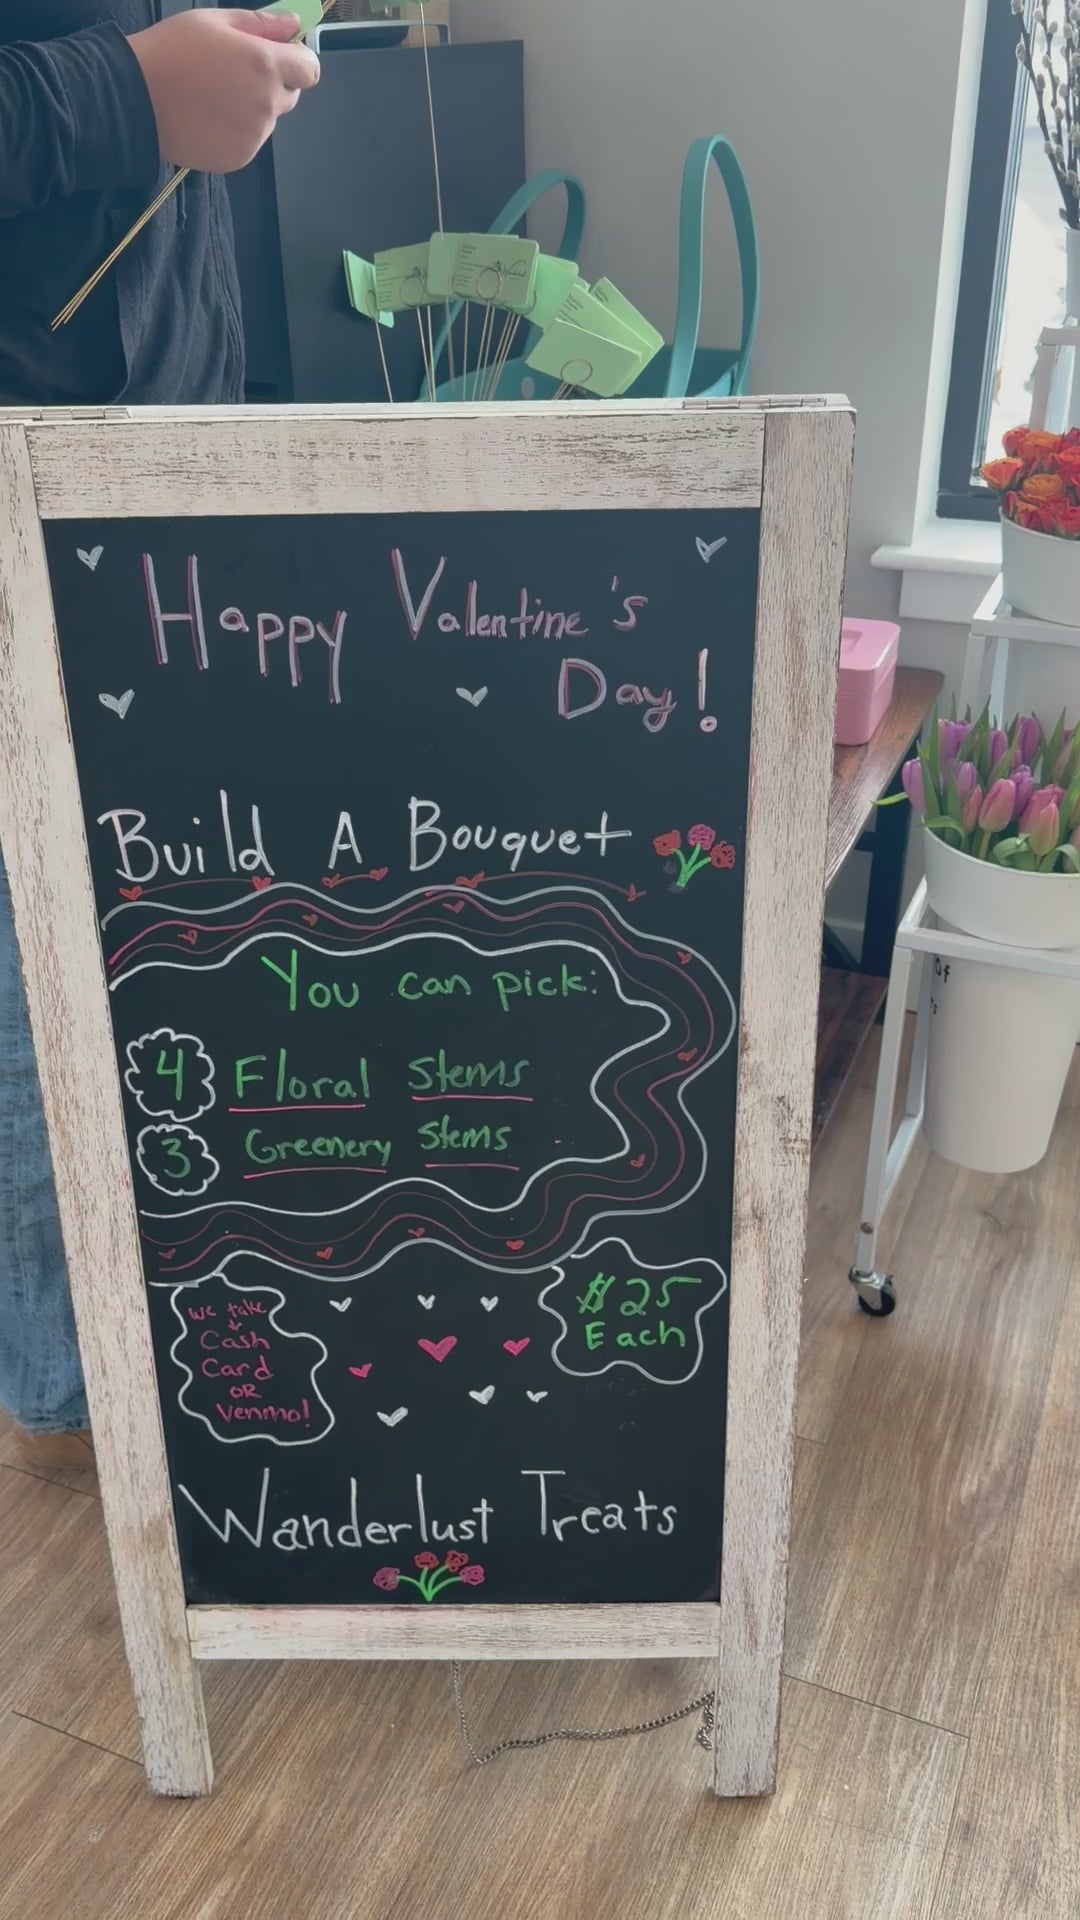 Happy Valentine's
Day!
Build A Bouquet
You can pick:
4 Floral Stems
3 Greenery Stems
We take
Cash
Card
OR
Venmo!
$25
Each
Wanderlust Treats
of